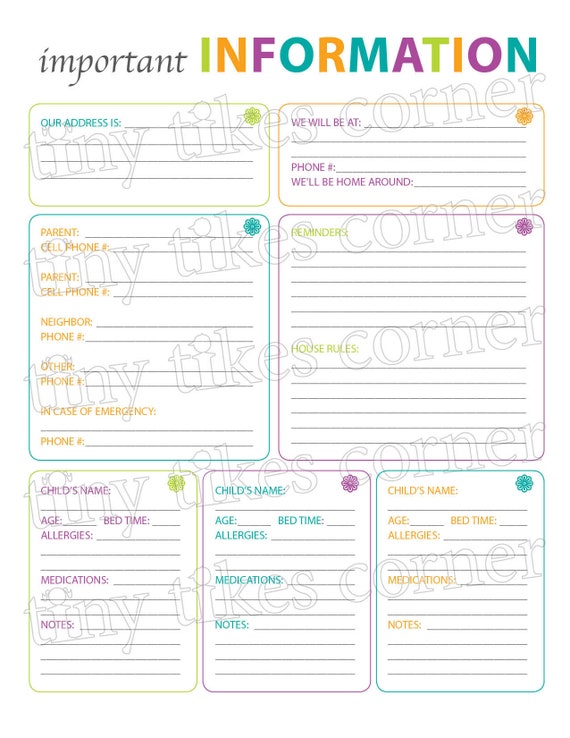 important INFORMATION
OUR ADDRESS IS:
WE WILL BE AT:
PHONE #:
WE'LL BE HOME AROUND:
PARENT:
CELL PHONE #:
PARENT:
CELL PHONE #:
NEIGHBOR:
PHONE #:
OTHER:
PHONE #:
IN CASE OF EMERGENCY:
PHONE #:
REMINDERS:
HOUSE RULES:
CHILD'S NAME:
AGE: BED TIME:
ALLERGIES:
MEDICATIONS:
NOTES:
CHILD'S NAME:
AGE: BED TIME:
ALLERGIES:
MEDICATIONS:
NOTES:
CHILD'S NAME:
AGE: BED TIME:
ALLERGIES:
MEDICATIONS:
NOTES:
tiny tikes corner
tiny tikes corner
tiny tikes corner
tiny tikes corner
tiny tikes corner